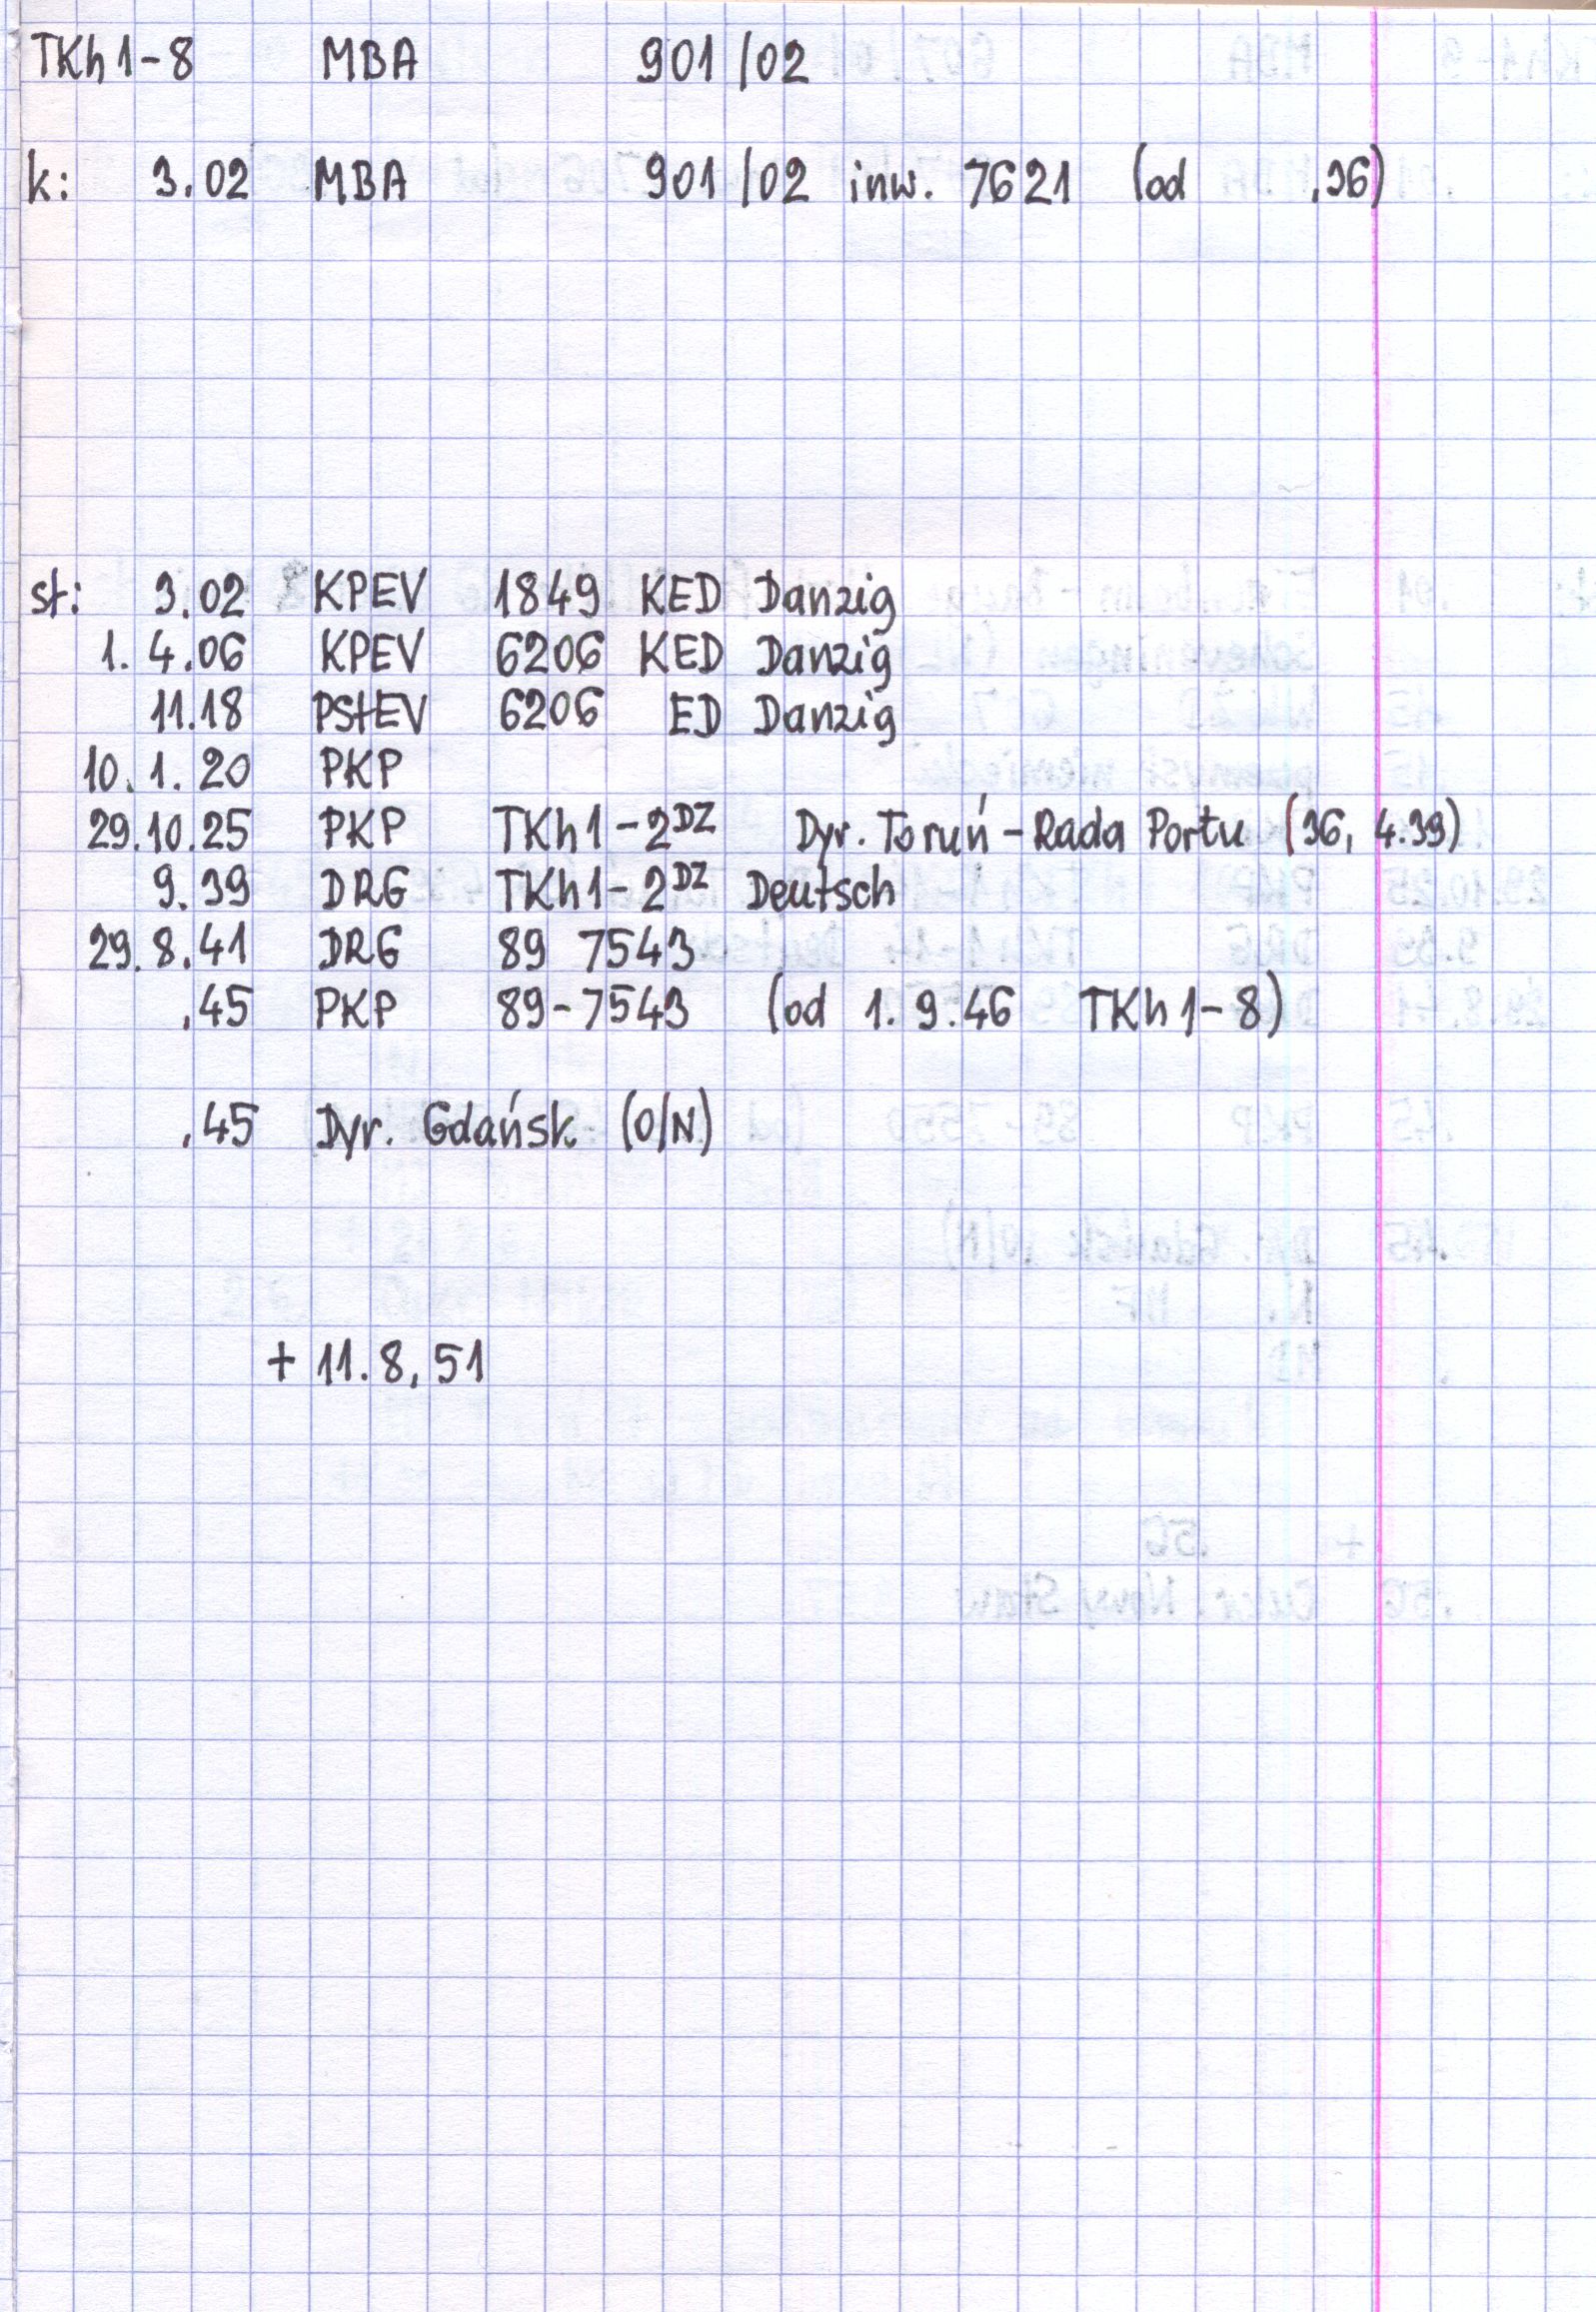 TKh1-8 MBA 901/02
k: 3.02 MBA 901/02 inw. 7621 (od .36)
st: 3.02 KPEV 1849 KED Danzig
1. 4.06 KPEV 6206 KED Danzig
11.18 PStEV 6206 ED Danzig
10. 1. 20 PKP
29.10.25 PKP TKh1-2DZ Dyr. Toruń-Rada Portu (36, 4.39)
9.39 DRG TKh1-2DZ Deutsch
29. 8.41 DRG 89 7543
.45 PKP 89-7543 (od 1. 9.46 TKh1-8)
.45 Dyr. Gdańsk (O/N)
+ 11.8.51